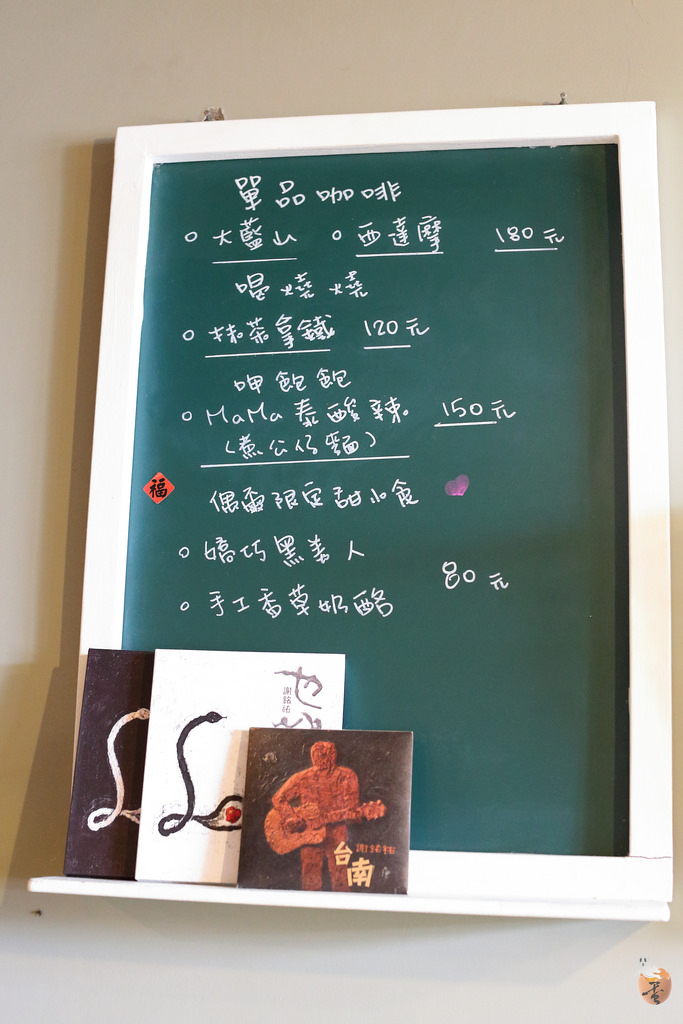 單品咖啡
○大藍山 ○西達摩 180元
喝燒燒
○抹茶拿鐵 120元
呷飽飽
○MaMa泰酸辣 150元
(煮公仔麵)
福
偶爾限定甜小食
○嬌巧黑美人
80元
○手工香草奶酪
也
謝銘祐
謝銘祐
台南